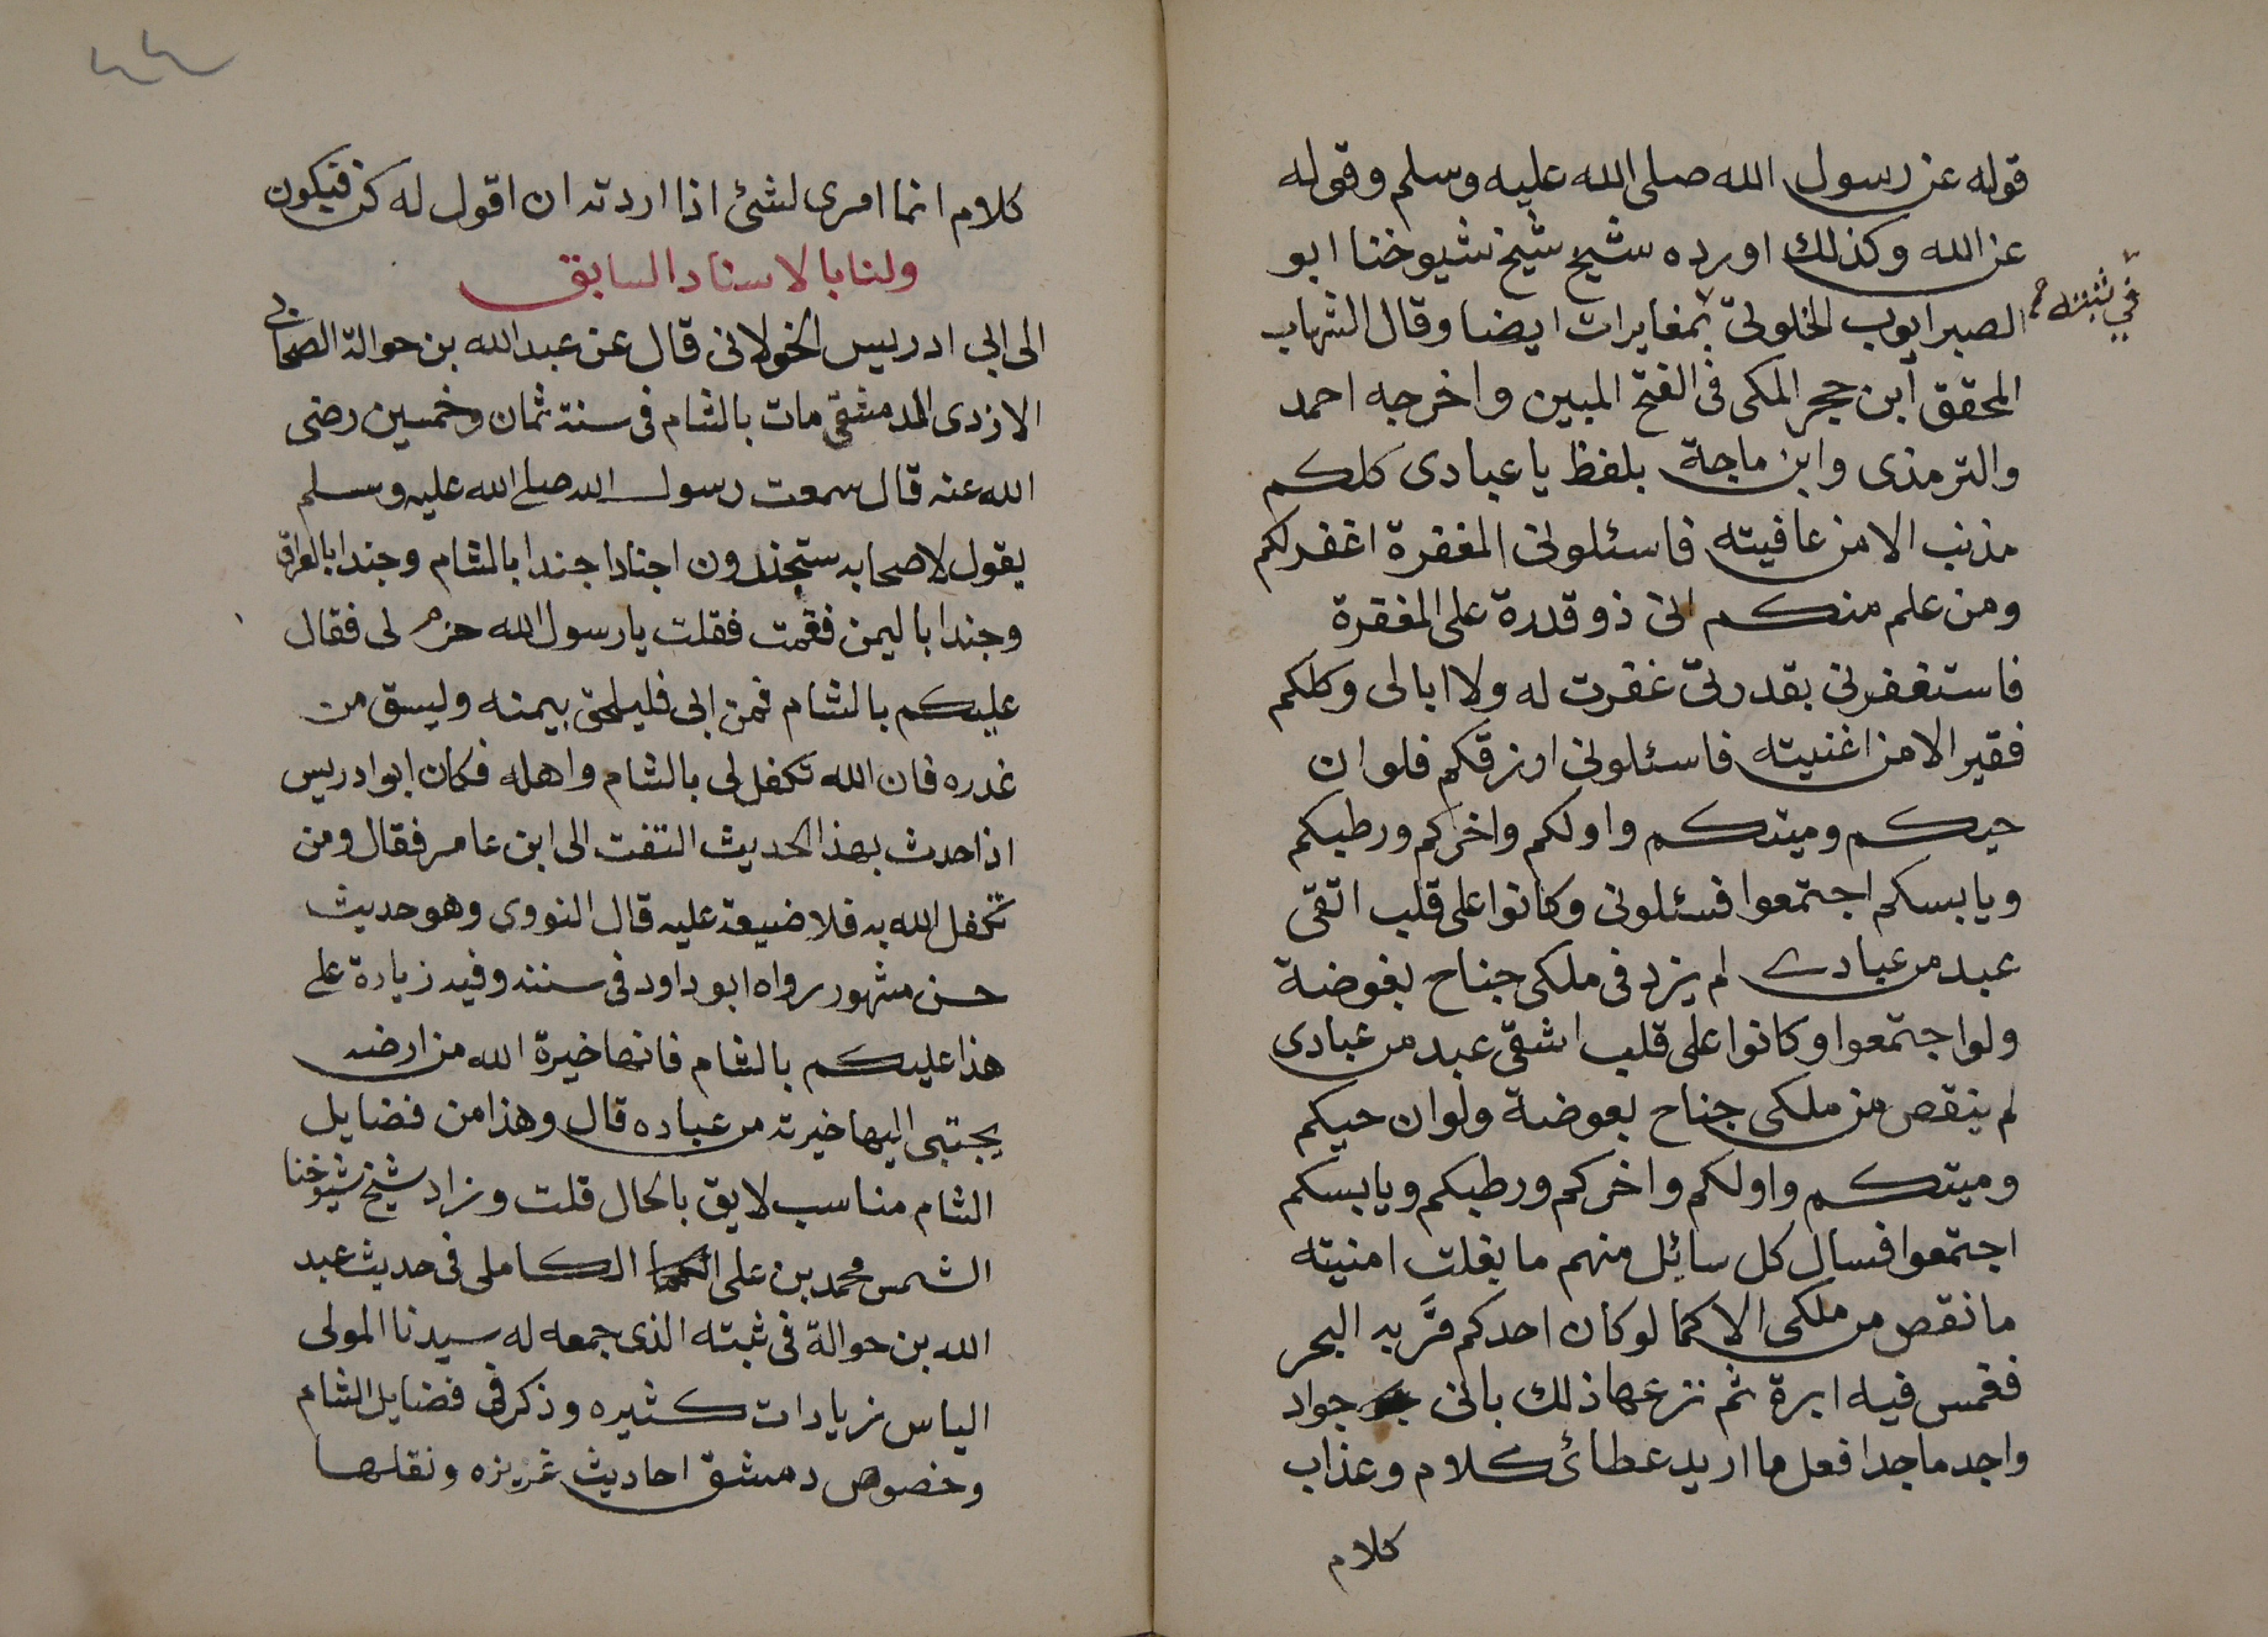 قوله عن رسول الله صلى الله عليه وسلم وقوله
عن الله وكذلك اورده شيخ شيخ شيوخنا ابو
في ثبته
الصبر ايوب الخلوتى بمغايرات ايضا وقال الشهاب
المحقق ابن حجر المكى فى الفتح المبين واخرجه احمد
والترمذى وابن ماجة بلفظ يا عبادى كلكم
مذنب الا من عافيته فاسئلونى المغفرة اغفر لكم
ومن علم منكم انى ذو قدرة على المغفرة
فاستغفرنى بقدرتى غفرت له ولا ابالى وكلكم
فقير الا من اغنيته فاسئلونى ارزقكم فلو ان
حيكم وميتكم واولكم واخركم ورطبكم
ويابسكم اجتمعوا فسئلونى وكانوا على قلب اتقى
عبد من عبادى لم يزد فى ملكى جناح بعوضة
ولو اجتمعوا وكانوا على قلب اشقى عبد من عبادى
لم ينقص من ملكى جناح بعوضة ولو ان حيكم
وميتكم واولكم واخركم ورطبكم ويابسكم
اجتمعوا فسال كل سائل منهم ما بغلت امنيته
ما نقص من ملكى الا كما لو كان احدكم مَّر به البحر
فغمس فيه ابرة ثم نزعها ذلك بانى جواد
واجد ماجد افعل ما اريد عطائ كلام وعذاب
كلام
كلام انما امرى لشئ اذا اردته ان اقول له كن فيكون
ولنا بالاسناد السابق
الى ابي ادريس الخولانى قال عن عبد الله بن حوالة الصحابي
الازدى الدمشقى مات بالشام فى سنة ثمان وخمسين رضى
الله عنه قال سمعت رسول الله صلى الله عليه وسلم
يقول لاصحابه ستجندون اجنادا جندا بالشام وجندا بالعراق
وجندا باليمن فقمت فقلت يا رسول الله خر لى فقال
عليكم بالشام فمن ابى فليلحق بيمنه وليسق من
غدره فان الله تكفل لى بالشام واهله فكان ابو ادريس
اذا حدث بهذا الحديث التفت الى ابن عامر فقال ومن
تكفل الله به فلا ضيعة عليه قال النووى وهو حديث
حسن مشهور رواه ابو داود فى سننه وفيه زيادة على
هذا عليكم بالشام فانها خيرة الله من ارضه
يجتبى اليها خيرته من عباده قال وهذا من فضايل
الشام مناسب لايق بالحال قلت وزاد شيخ شيوخنا
الشمس محمد بن على الكاملى فى حديث عبد
الله بن حوالة فى ثبته الذى جمعه له سيدنا المولى
الياس زيادات كثيره وذكر فى فضايل الشام
وخصوص دمشق احاديث غزيزه ونقلها